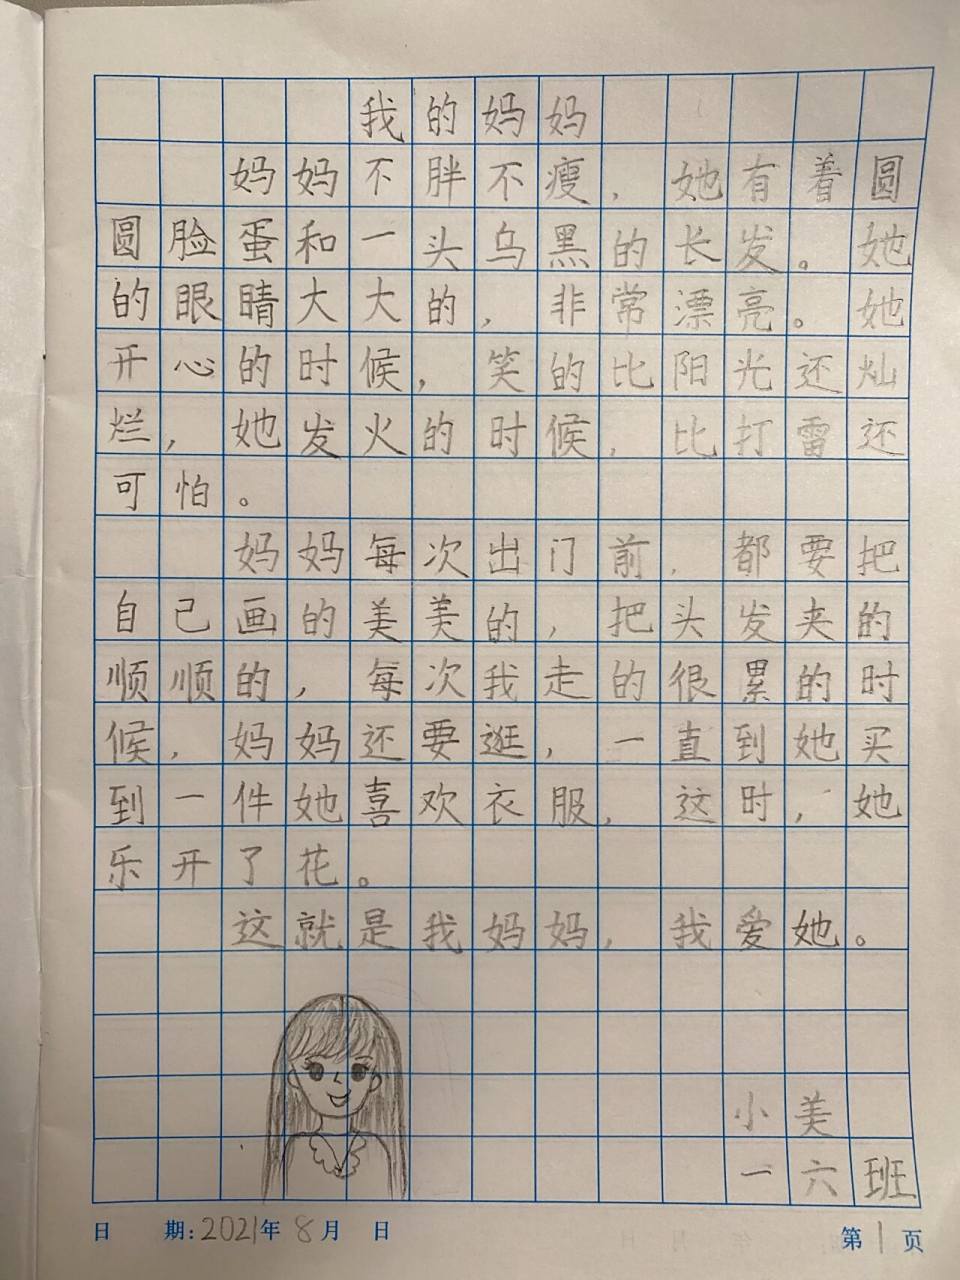 我的妈妈
妈妈不胖不瘦，她有着圆
圆脸蛋和一头乌黑的长发。她
的眼睛大大的，非常漂亮。她
开心的时候，笑的比阳光还灿
烂，她发火的时候，比打雷还
可怕。
妈妈每次出门前，都要把
自己画的美美的，把头发夹的
顺顺的，每次我走的很累的时
候，妈妈还要逛，一直到她买
到一件她喜欢衣服，这时，她
乐开了花。
这就是我妈妈，我爱她。
小美
一六班
日 期：2021年8月 日 第1页